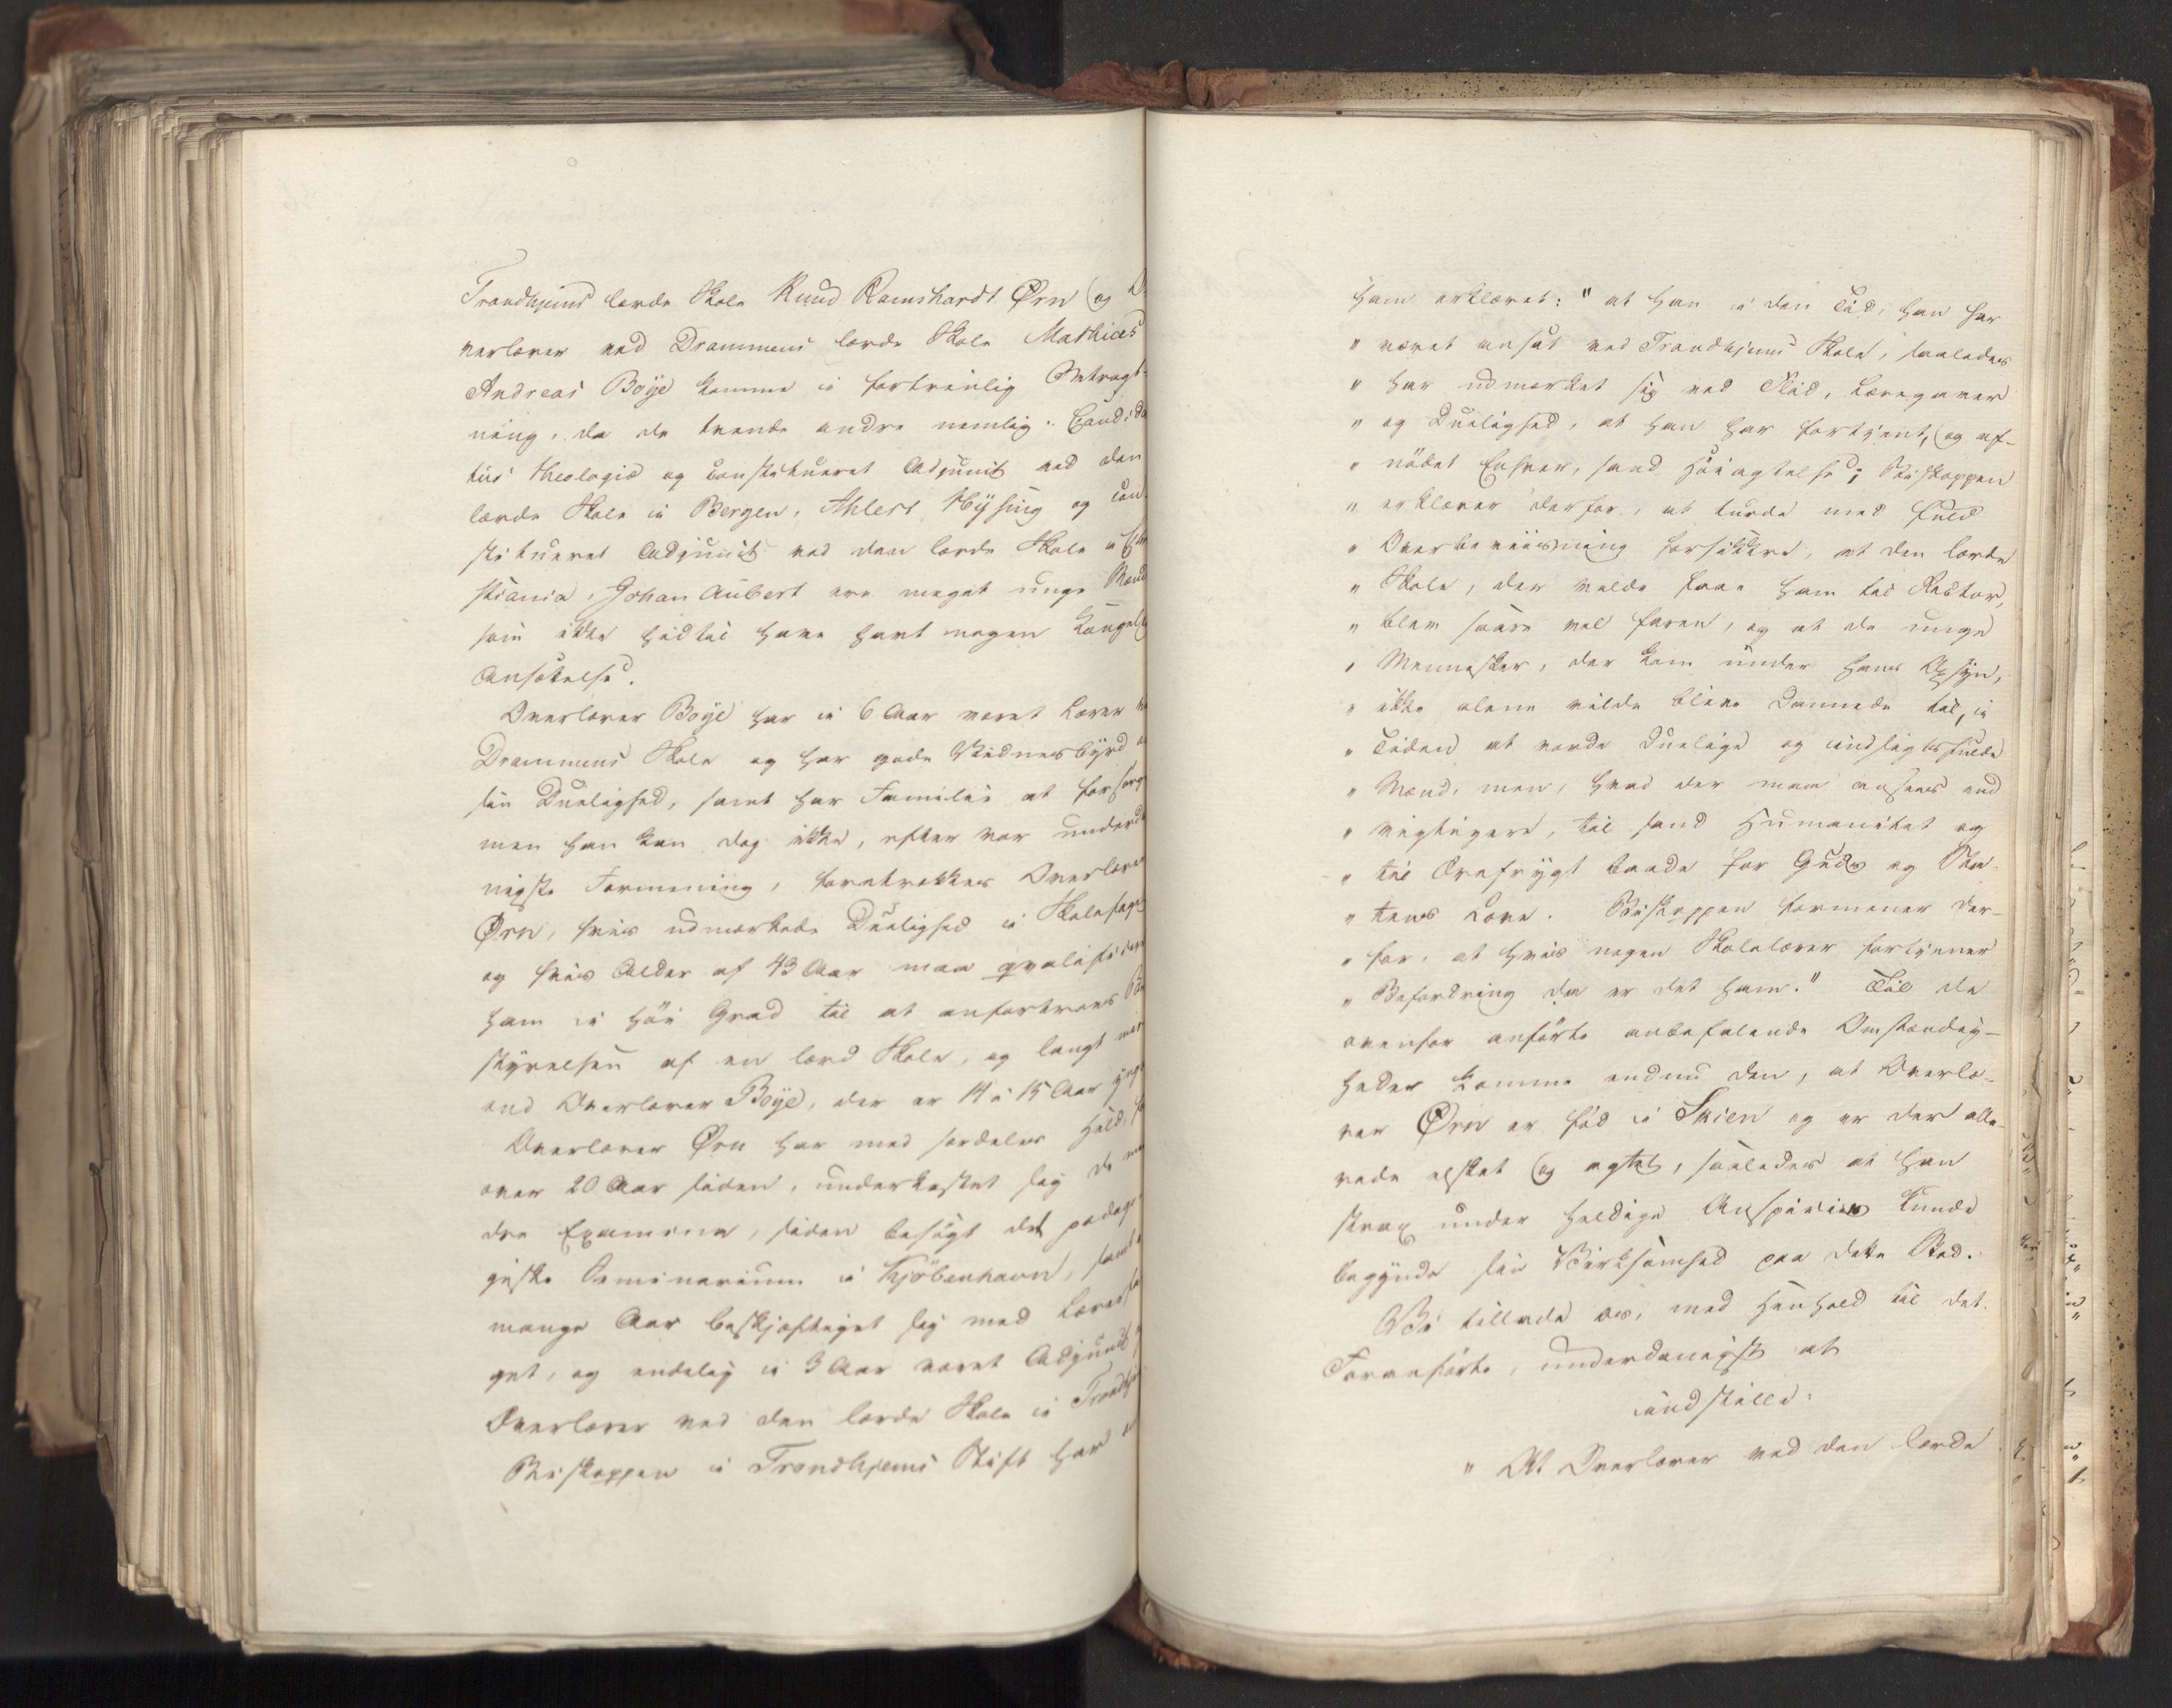 Trondhjems lærde Skole Knud Ramshardt Ørn og O-
verlærer ved Drammens lærde Skole Mathias
Andreas Boye komme i fortrinlig Betragt-
ning, da de tvende andre nemlig: Candida
tus theologiæ og constitueret Adjunct ved den
lærde Skole i Bergen, Ahlert Hysing og con-
stitueret Adjunct ved den lærde Skole i Chri
stiania, Johan Aubert ere meget unge Mænd
som ikke hidtil have havt nogen Kongelig
Ansættelse.
Overlærer Boye har i 6 Aar været Lærer ve
Drammens Skole og har gode Vidnesbyrd o
sin Duelighed, samt har Familie at forsørg
men han kan dog ikke, efter vor underda
nigste Formening, foretrækkes Overlærer
Ørn, hvis udmærkede Duelighed i Skolefaget
og hvis Alder af 43 Aar maa qvalificere
ham i høi Grad til at anfortroes Be
styrelsen af en lærd Skole, og langt mer
end Overlærer Boye, der er 14 à 15 Aar yng
Overlærer Ørn har med særdeles Held, fo
over 20 Aar siden, underkastet sig de
dre Examina, siden besøgt det pædago
giske Seminarium i Kjöbenhavn, samt i
mange Aar beskjæftiget sig med Læresfa
get, og endelig i 3 Aar været Adjunct
Overlærer ved den lærde Skole i Trondhjem
Biskoppen i Trondhjems Stift har
ham erklæret: "at han i den Tid, han har
" været ansat ved Trondhjems Skole, saaledes
" har udmærket sig ved Flid, Læregaver
" og Duelighed, at han har fortjent, og af-
" nödet Enhver, sand Höiagtelse; Biskoppen
" erklærer derfor, at turde med fuld
" Overbeviisning forsikkre, at den lærde
" Skole, der vilde faae ham til Rector,
" blev saare vel faren, og at de unge
" Mennesker, der kom under hans Opsyn,
" ikke alene vilde blive dannede til, i
" Tiden at vorde duelige og indsigtsfulde
" Mænd, men, hvad der maa ansees end
" vigtigere, til sand Humanitet og
" til Ærefrygt baade for Guds og Sta-
" tens Love. Biskoppen formener der-
" for, at hvis nogen Skolelærer fortjener
" Befordring da er det ham." Til de
ovenfor anførte anbefalende Omstændig-
heder komme endnu den, at Overlæ-
rer Ørn er fød i Skien og er der alle-
rede elsket og agtet, saaledes at han
strax under heldige Auspicier kunde
begynde sin Virksomhed paa dette Sted.
Vi tillade os, med Henhold til det
Foranførte, underdanigst at
indstille:
" At Overlærer ved den lærde